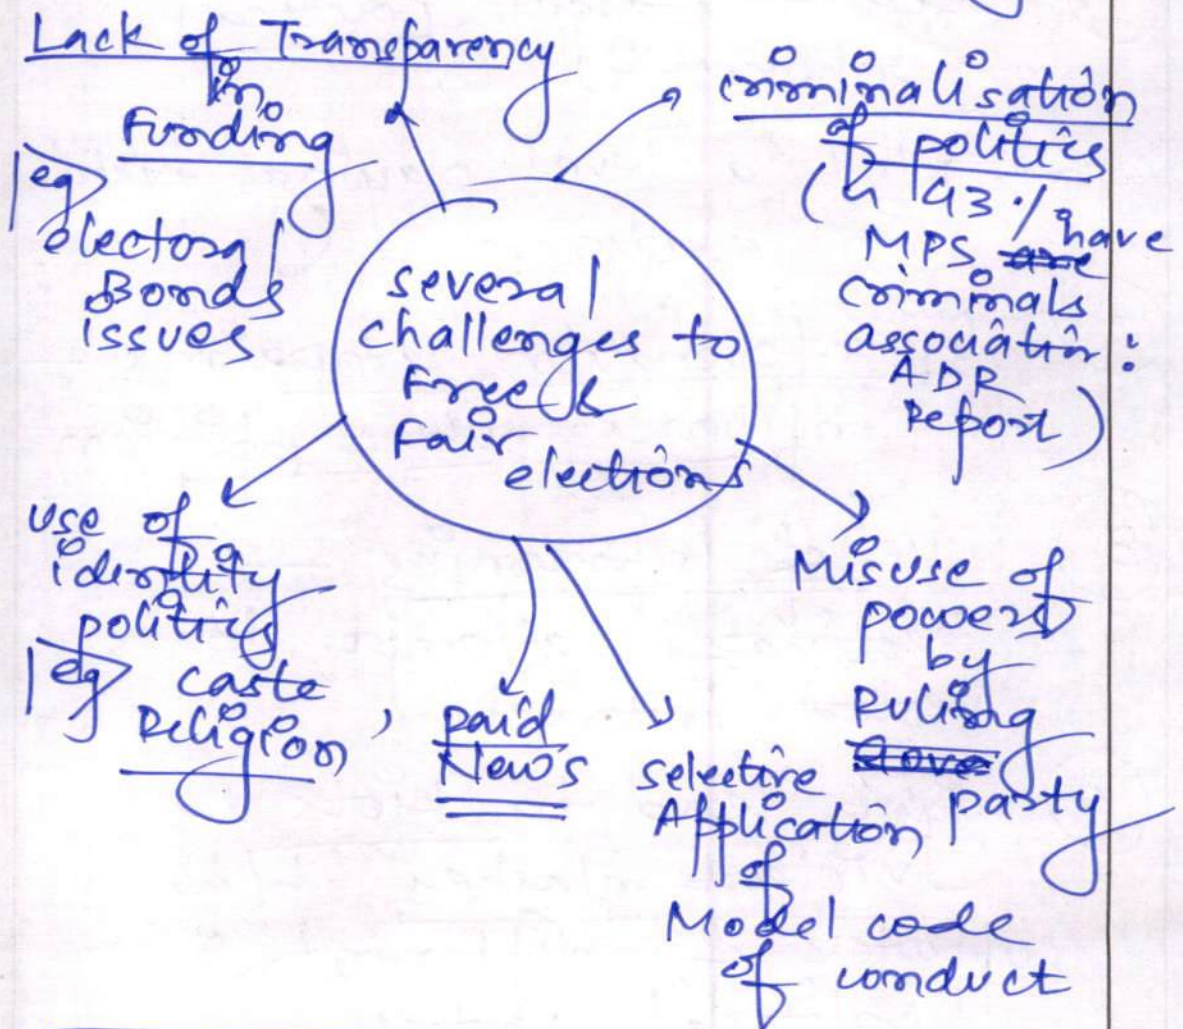 Lack of Transparency
in
Funding
eg
electoral
Bonds
issues
criminalisation
of politics
(↳ 43% have
MPS are
criminals
association:
ADR
Report)
several
challenges to
Free &
Fair
elections
use of
identity
politics
eg caste
Religion,
paid
News
selective
Application
of
Model code
of conduct
Misuse of
powers
by
Ruling
Gove
party